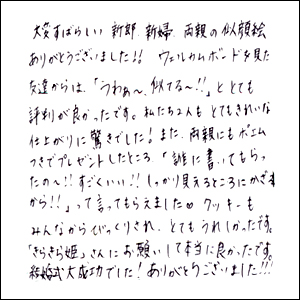 大変すばらしい 新郎 新婦、両親の似顔絵
ありがとうございました!! ウェルカムボードを見た
友達からは、「うわぁ〜、似てる〜!!」と とても
評判が良かったです。私たち2人も とてもきれいな
仕上がりに驚きでした! また、両親にもポエム
つきでプレゼントしたところ、「誰に書いてもらっ
たの〜!! すごくいい!! しっかり見えるところにかざる
から!!」って言ってもらえました クッキーも
みんなからびっくりされ、とてもうれしかったです。
「きらきら姫」さんにお願いして本当に良かったです。
結婚式大成功でした! ありがとうございました!!!